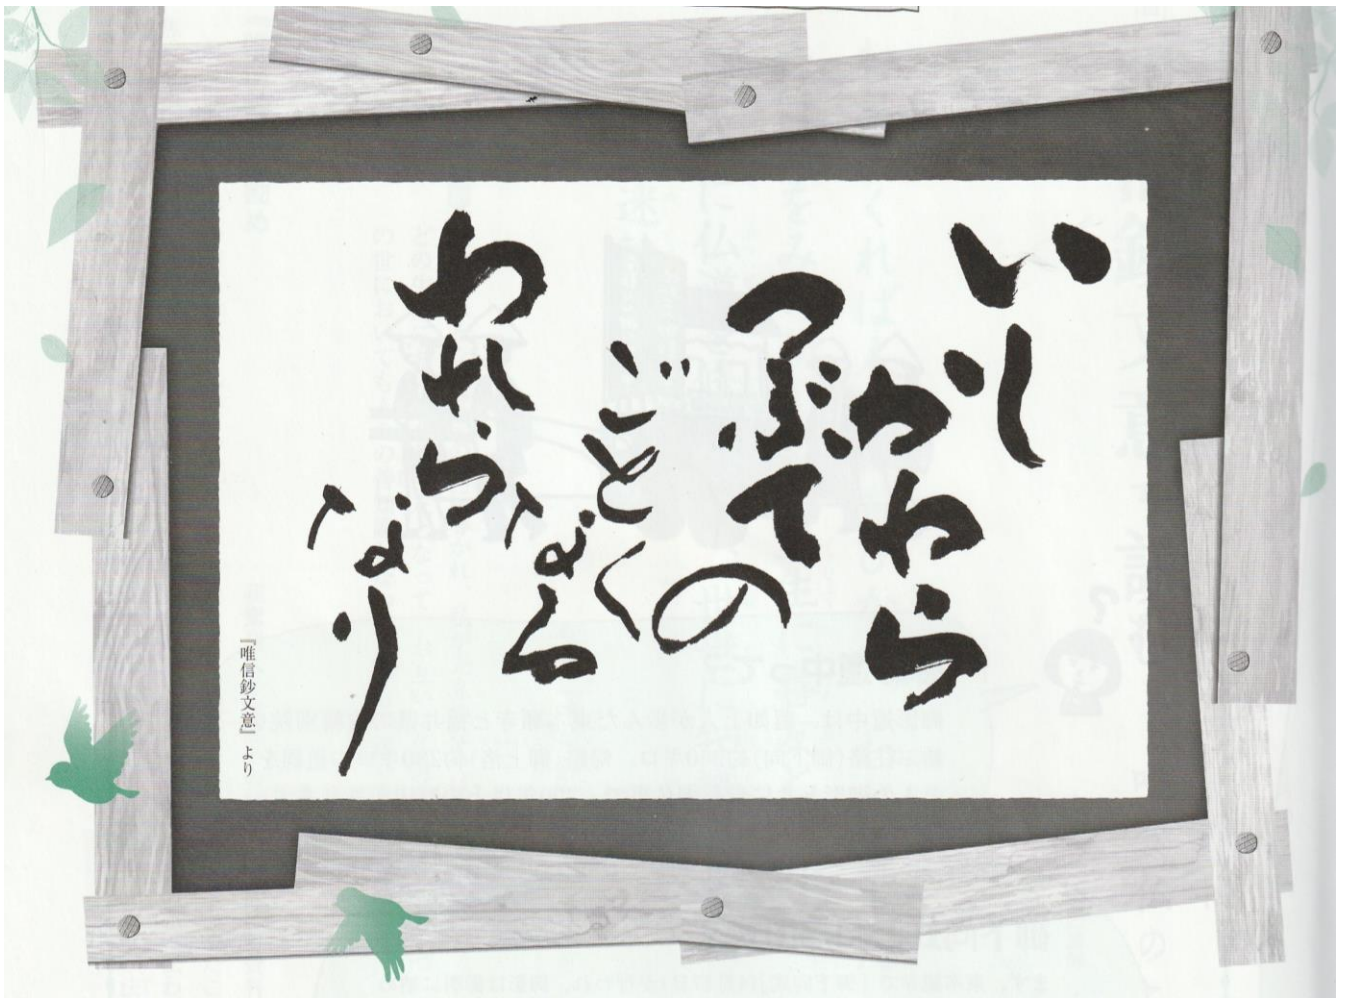 いし
かわら
つぶての
ごとくなる
われら
なり
『唯信鈔文意』より